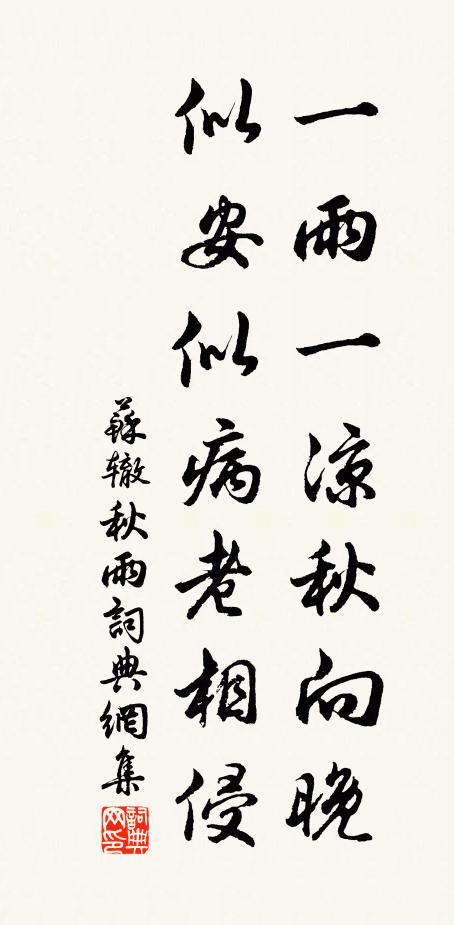 一雨一凉秋向晚
似安似病老相侵
蘇辙秋雨詞典網集
詞典网印